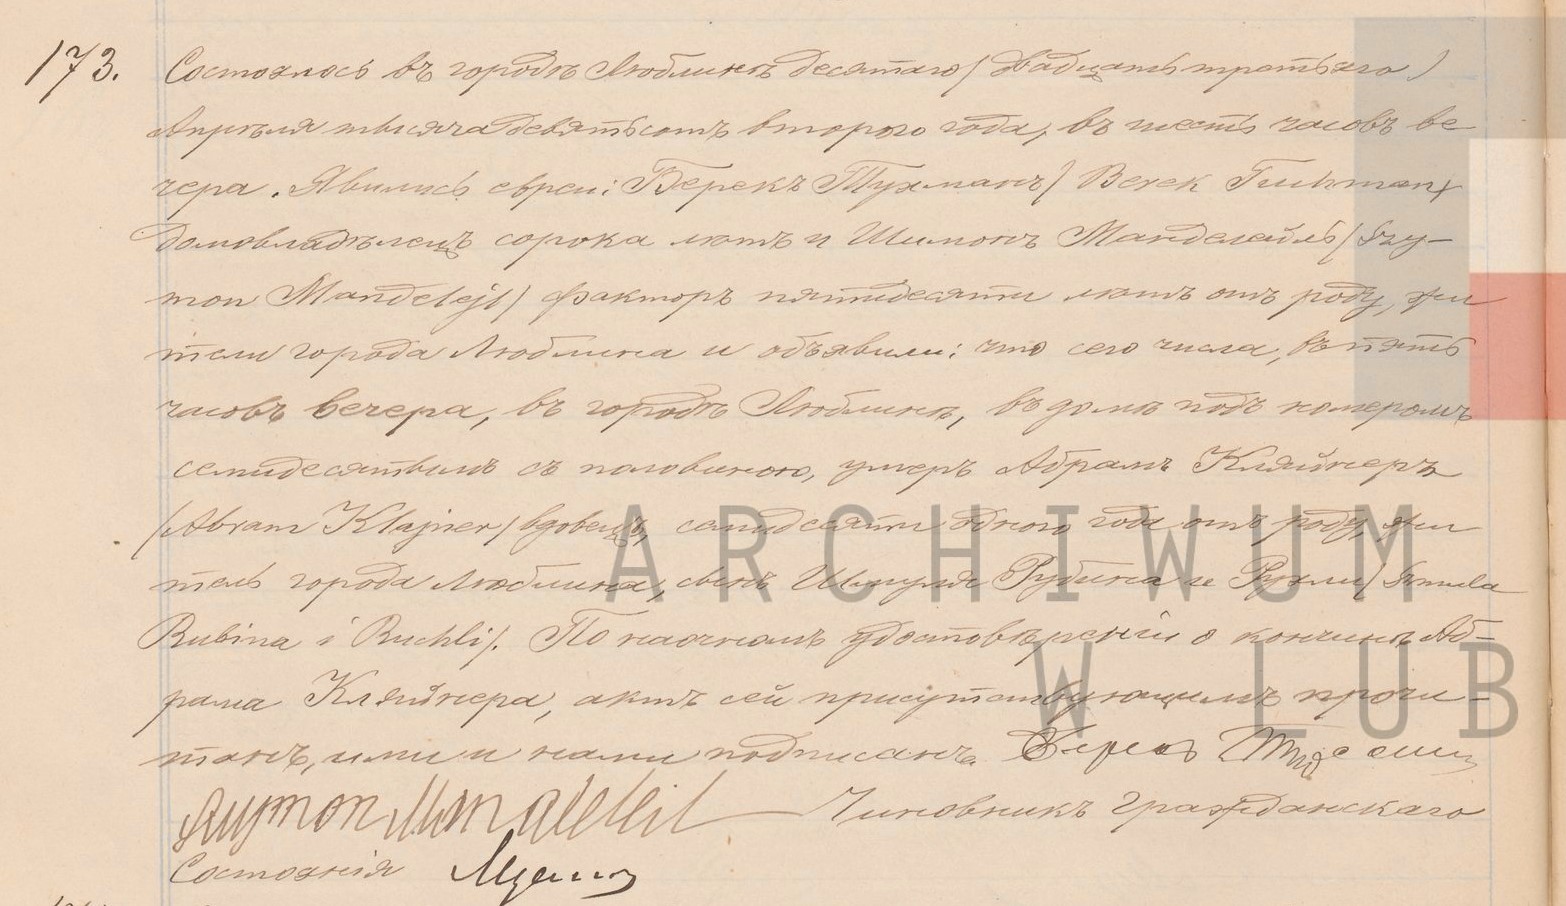 173. Состоялось въ городѣ Люблинѣ десятаго / двадцать третьяго /
Апрѣля тысяча девятьсотъ второго года, въ шесть часовъ ве-
чера. Явились евреи: Берекъ Тухманъ / Berek Tuchman /
домовладѣлецъ сорока лѣтъ и Шимонъ Манделейль / Szy-
mon Mandelejl / факторъ пятидесяти лѣтъ отъ роду, жи
тели города Люблина и объявили: что сего числа, въ пять
часовъ вечера, въ городѣ Люблинѣ, въ домѣ подъ номеромъ
семидесятымъ съ половиною, умеръ Абрамъ Кляйнеръ
/ Abram Klajner / вдовецъ, семидесяти одного года отъ роду, жи
тель города Люблина, сынъ Шмуля Рубина и Рухли / Szmula
Rubina i Ruchli /. По наочномъ удостовѣреніи о кончинѣ Аб-
рама Кляйнера, актъ сей присутствующимъ прочи-
танъ, ими и нами подписанъ. Берекъ
Szymon Mandelleil Чиновникъ Гражданскаго
Состоянія
ARCHIWUM
W LUB